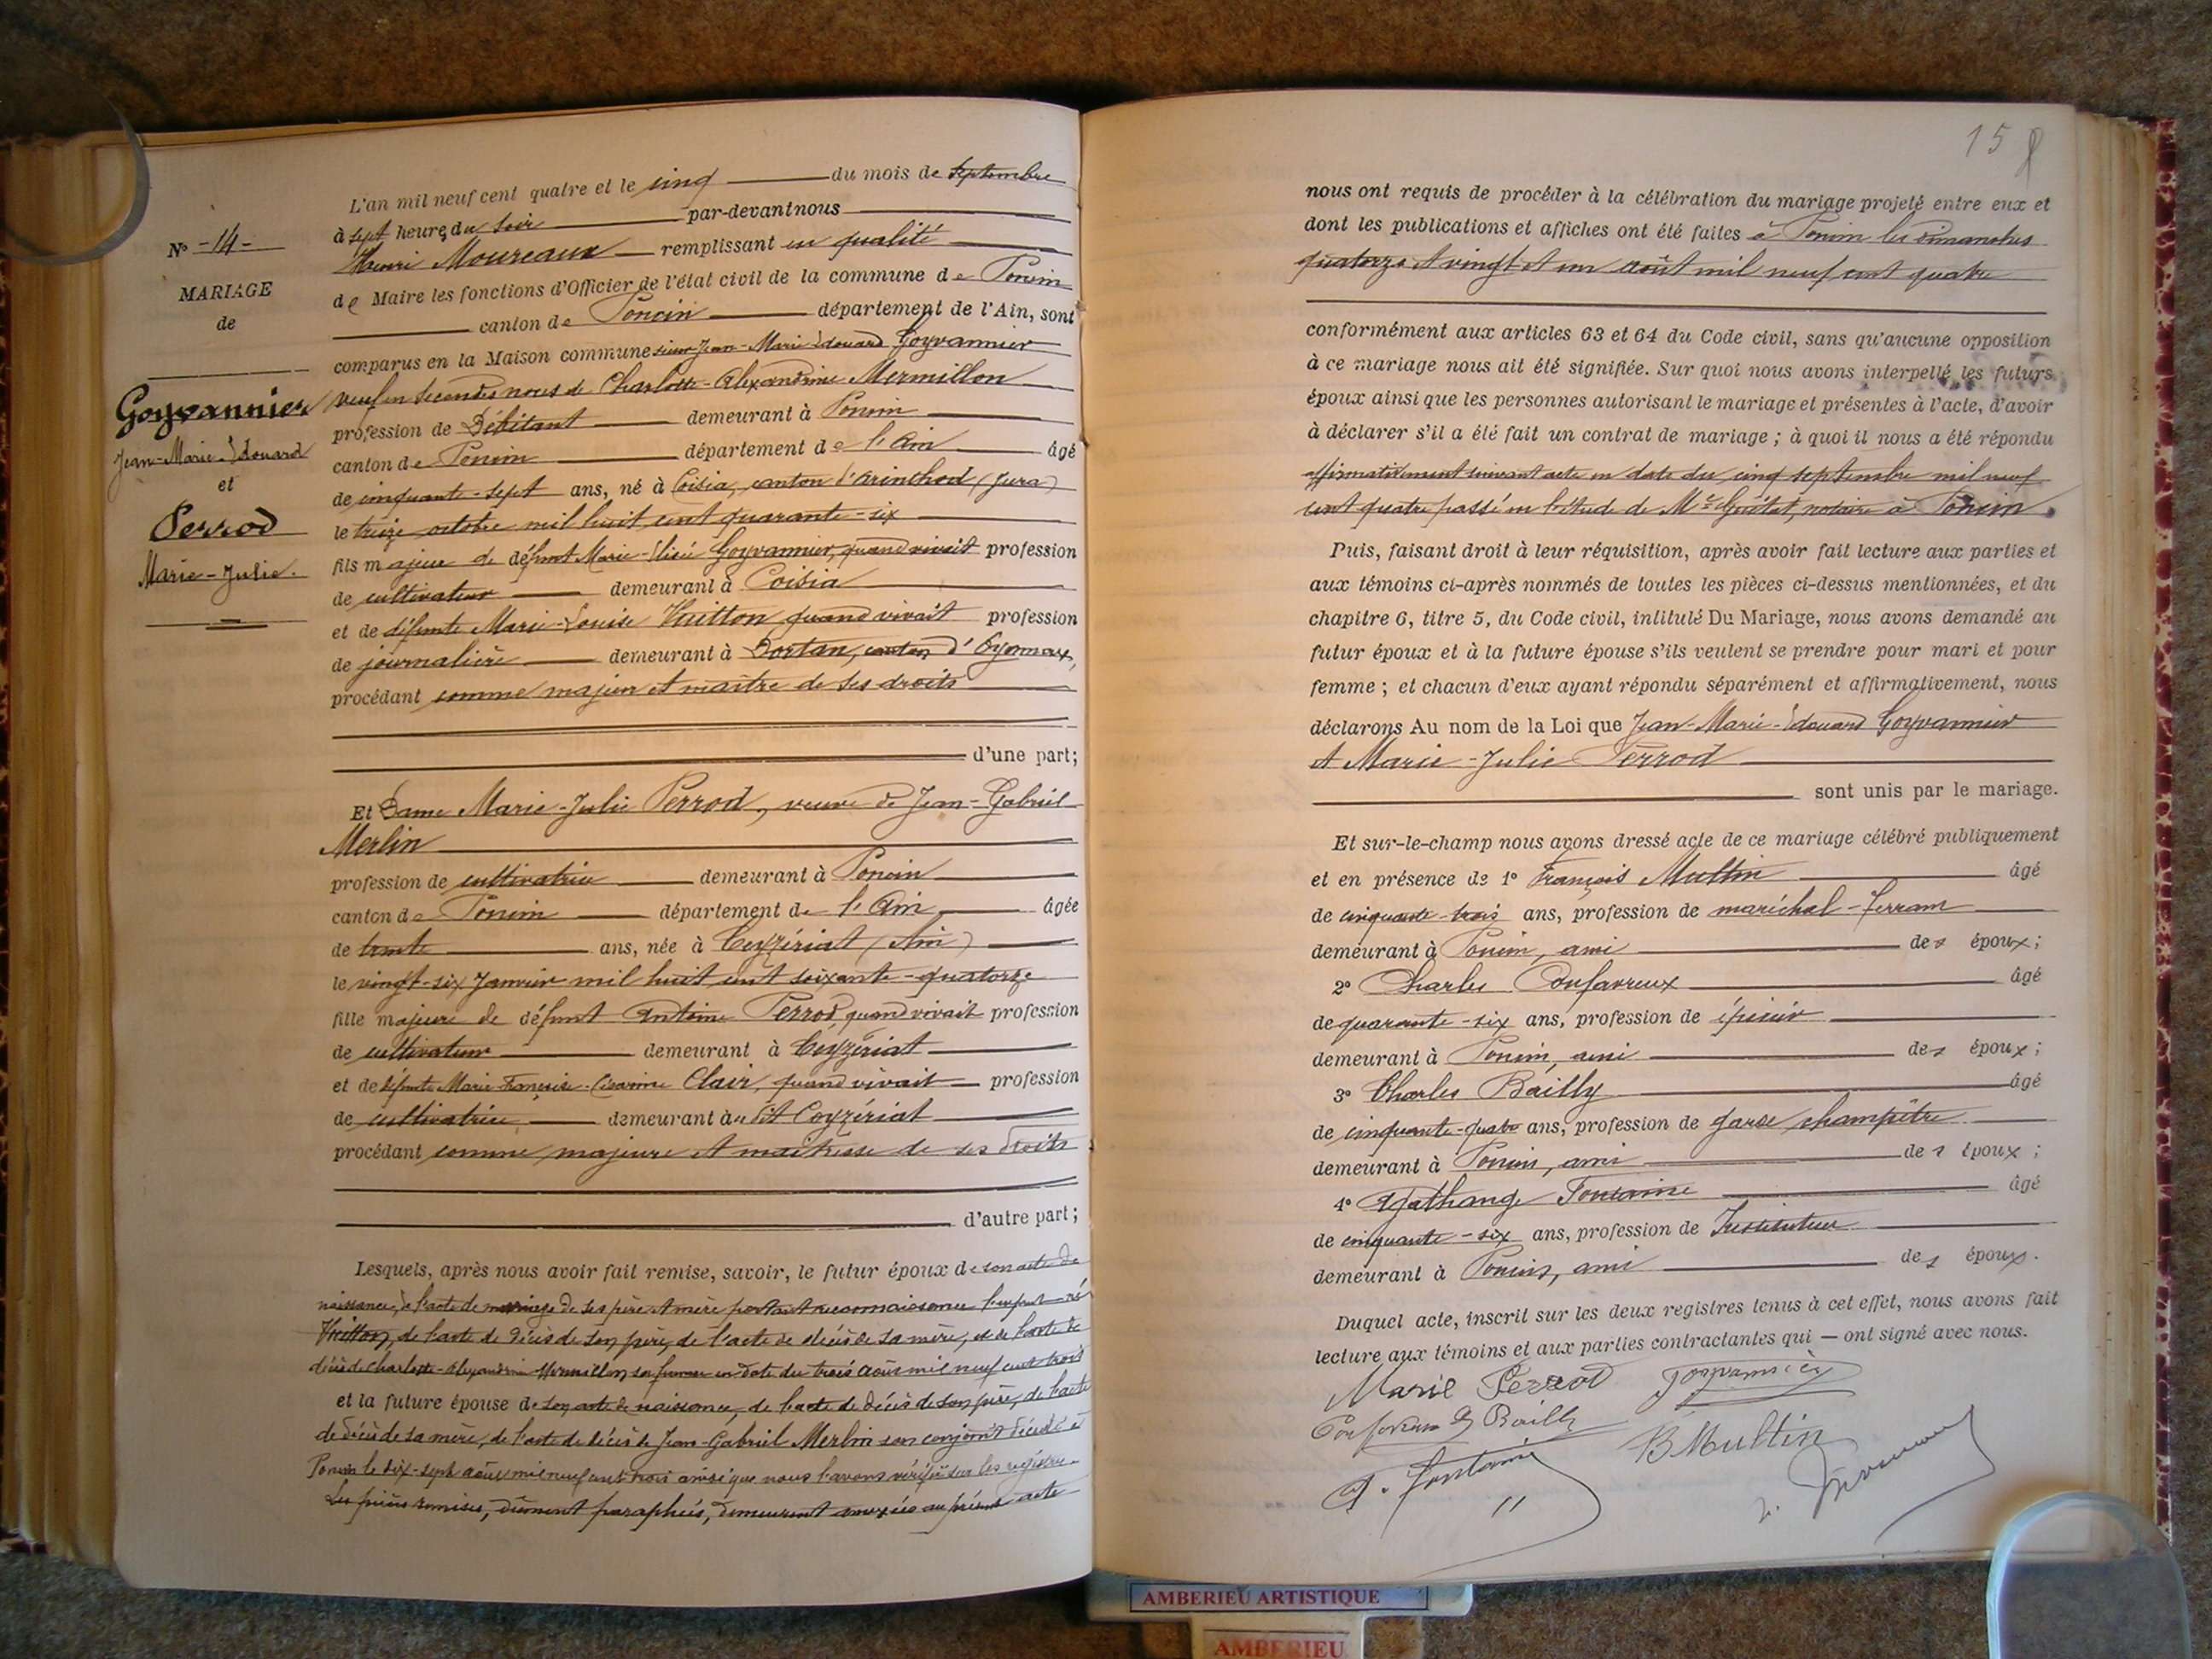 N° -14-
MARIAGE
de
Goyvannier
Jean-Marie-Édouard
et
Perrod
Marie-Julie.
L'an mil neuf cent quatre et le cinq du mois de septembre
à sept heures du soir par-devant nous
Henri Moureaux remplissant en qualité
de Maire les fonctions d'Officier de l'état civil de la commune de Poncin
canton de Poncin département de l'Ain, sont
comparus en la Maison commune sieur Jean-Marie-Édouard Goyvannier
veuf en secondes noces de Charlotte-Alexandrine Mermillon
profession de Débitant demeurant à Poncin
canton de Poncin département de l'Ain âgé
de cinquante-sept ans, né à Coisia, canton d'Arinthod (Jura)
le treize octobre mil huit cent quarante-six
fils majeur de défunt Marie-Élisée Goyvannier, quand vivait profession
de cultivateur demeurant à Coisia
et de défunte Marie-Louise Vuitton quand vivait profession
de journalière demeurant à Dortan, canton d'Oyonnax,
procédant comme majeur et maître de ses droits
d'une part;
Et Dame Marie-Julie Perrod, veuve de Jean-Gabriel
Merlin
profession de cultivatrice demeurant à Poncin
canton de Poncin département de l'Ain âgée
de trente ans, née à Ceyzériat (Ain)
le vingt-six Janvier mil huit cent soixante-quatorze
fille majeure de défunt Antoine Perrod quand vivait profession
de cultivateur demeurant à Ceyzériat
et de défunte Marie Françoise-Césarine Clair, quand vivait profession
de cultivatrice demeurant au dit Ceyzériat
procédant comme majeure et maîtresse de ses droits
d'autre part;
Lesquels, après nous avoir fait remise, savoir, le futur époux de son acte de
naissance, de l'acte de mariage de ses père et mère portant reconnaissance
Vuitton, de l'acte de décès de son père, de l'acte de décès de sa mère, et de l'acte de
décès de Charlotte-Alexandrine Mermillon sa femme en date du trois août mil neuf cent trois
et la future épouse de son acte de naissance, de l'acte de décès de son père, de l'acte
de décès de sa mère, de l'acte de décès de Jean-Gabriel Merlin son conjoint décédé à
Poncin le dix-sept août mil neuf cent trois ainsi que nous l'avons vérifié sur les registres.
Les pièces remises, dûment paraphées, demeurent annexées au présent acte
15
nous ont requis de procéder à la célébration du mariage projeté entre eux et
dont les publications et affiches ont été faites à Poncin les dimanches
quatorze et vingt et un août mil neuf cent quatre
conformément aux articles 63 et 64 du Code civil, sans qu'aucune opposition
à ce mariage nous ait été signifiée. Sur quoi nous avons interpellé les futurs
époux ainsi que les personnes autorisant le mariage et présentes à l'acte, d'avoir
à déclarer s'il a été fait un contrat de mariage ; à quoi il nous a été répondu
affirmativement suivant acte en date du cinq septembre mil neuf
cent quatre passé en l'étude de Me Guétat, notaire à Poncin.
Puis, faisant droit à leur réquisition, après avoir fait lecture aux parties et
aux témoins ci-après nommés de toutes les pièces ci-dessus mentionnées, et du
chapitre 6, titre 5, du Code civil, intitulé Du Mariage, nous avons demandé au
futur époux et à la future épouse s'ils veulent se prendre pour mari et pour
femme ; et chacun d'eux ayant répondu séparément et affirmativement, nous
déclarons Au nom de la Loi que Jean-Marie-Édouard Goyvannier
et Marie-Julie Perrod
sont unis par le mariage.
Et sur-le-champ nous avons dressé acte de ce mariage célébré publiquement
et en présence de 1° François Multin âgé
de cinquante-trois ans, profession de maréchal-ferrant
demeurant à Poncin, ami des époux;
2° Charles Confavreux âgé
de quarante-six ans, profession de épicier
demeurant à Poncin, ami des époux;
3° Charles Bailly âgé
de cinquante-quatre ans, profession de garde champêtre
demeurant à Poncin, ami des époux;
4° Agathange Fontaine âgé
de cinquante-six ans, profession de Instituteur
demeurant à Poncin, ami des époux.
Duquel acte, inscrit sur les deux registres tenus à cet effet, nous avons fait
lecture aux témoins et aux parties contractantes qui — ont signé avec nous.
Marie Perrod Goyvannier
Confavreux Bailly
B Multin
A. Fontaine
AMBERIEU ARTISTIQUE
AMBERIEU